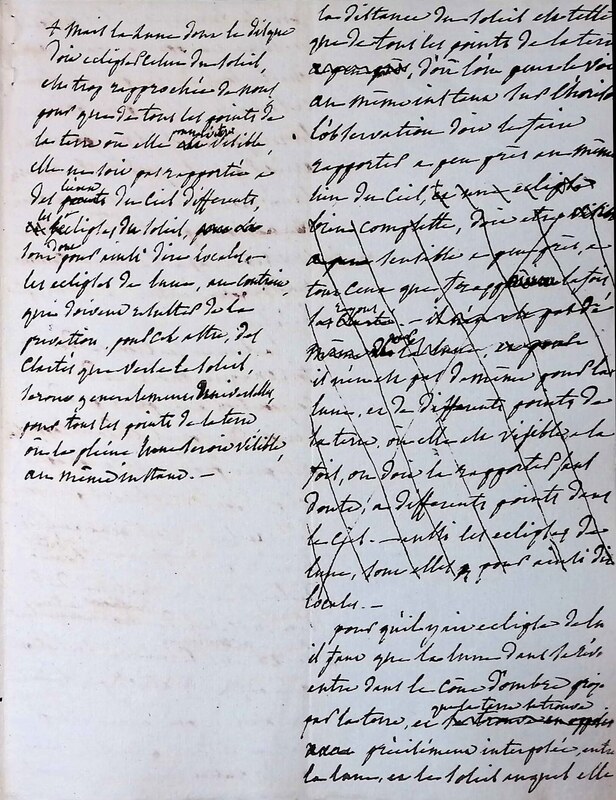 + Mais la lune dont le disque
doit eclipser celui du soleil,
est trop rapprochée de nous
pour que de tous les points de
la terre où elle visible,
elle ne soit pas rapportée a
des lieux points du ciel differents,
les eclipses du soleil
sont donc pour ainsi dire locales
les eclipses de lune, au contraire,
qui doivent resulter de la
privation, pour cet astre, des
clartés que verse le soleil,
seront generalement universelles,
pour tous les points de la terre
où la pleine lune seroit visible,
au même instant. —
la distance du soleil est telle
que de tous les points de la terre
a peu près, d'où l'on peut le voi
au même instant sur l'horiso
l'observation doit le faire
rapporter a peu près au même
lieu du ciel, et une eclipse
bien complette, doit etre visible
sensible a peu près, a
tous ceux que la fois
les rayons clartés. — il n'en est pas de
même de la lune,
il n'en est pas de même pour la
lune, et de differents points de
la terre, où elle est visible a la
fois, on doit la rapporter sans
doute, a differents points dans
le ciel. — aussi les eclipses de
lune, sont elles pour ainsi dir
locales. —
pour qu'il y ait eclipse de lu
il faut que la lune dans sa rév
entre dans le cône d'ombre proj
par la terre, et que la terre se trouve se trouve en
précisément interposée, entr
la lune, et le soleil auquel elle